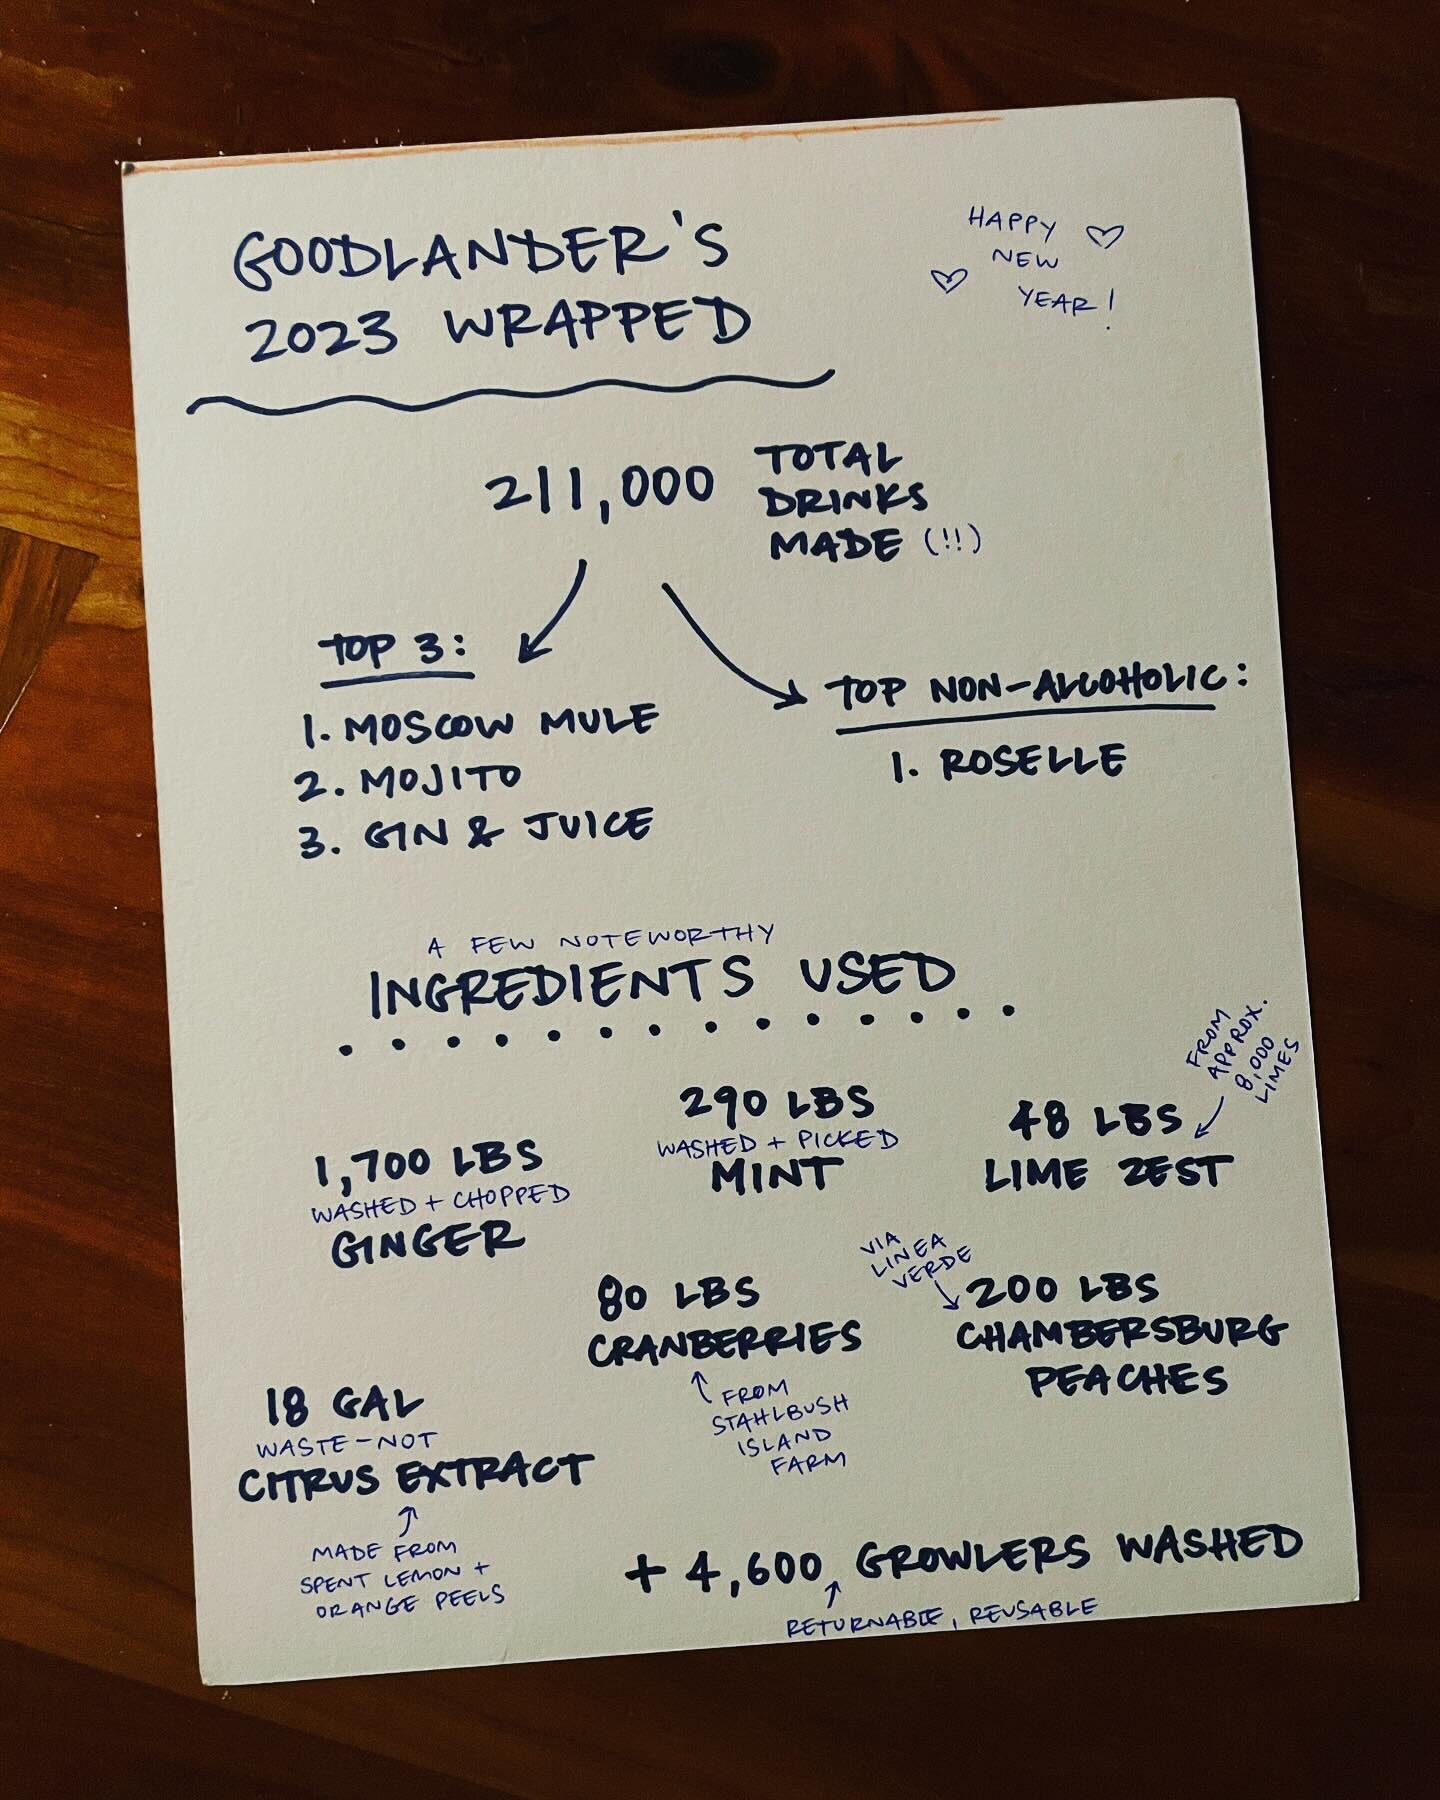 GOODLANDER'S
2023 WRAPPED
HAPPY
NEW
YEAR!
211,000
TOTAL
DRINKS
MADE (!!)
TOP 3:
1. MOSCOW MULE
2. MOJITO
3. GIN & JUICE
TOP NON-ALCOHOLIC:
1. ROSELLE
A FEW NOTEWORTHY
INGREDIENTS USED
1,700 LBS
WASHED + CHOPPED
GINGER
290 LBS
WASHED + PICKED
MINT
FROM
APPROX.
8,000
LIMES
48 LBS
LIME ZEST
80 LBS
CRANBERRIES
FROM
STAHLBUSH
ISLAND
FARM
VIA
LINEA
VERDE
200 LBS
CHAMBERSBURG
PEACHES
18 GAL
WASTE-NOT
CITRUS EXTRACT
MADE FROM
SPENT LEMON +
ORANGE PEELS
+ 4,600 GROWLERS WASHED
RETURNABLE, REUSABLE